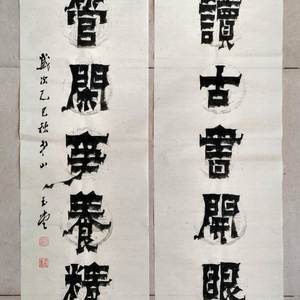 讀古書開眼
管閑事養精
歲次乙巳秋